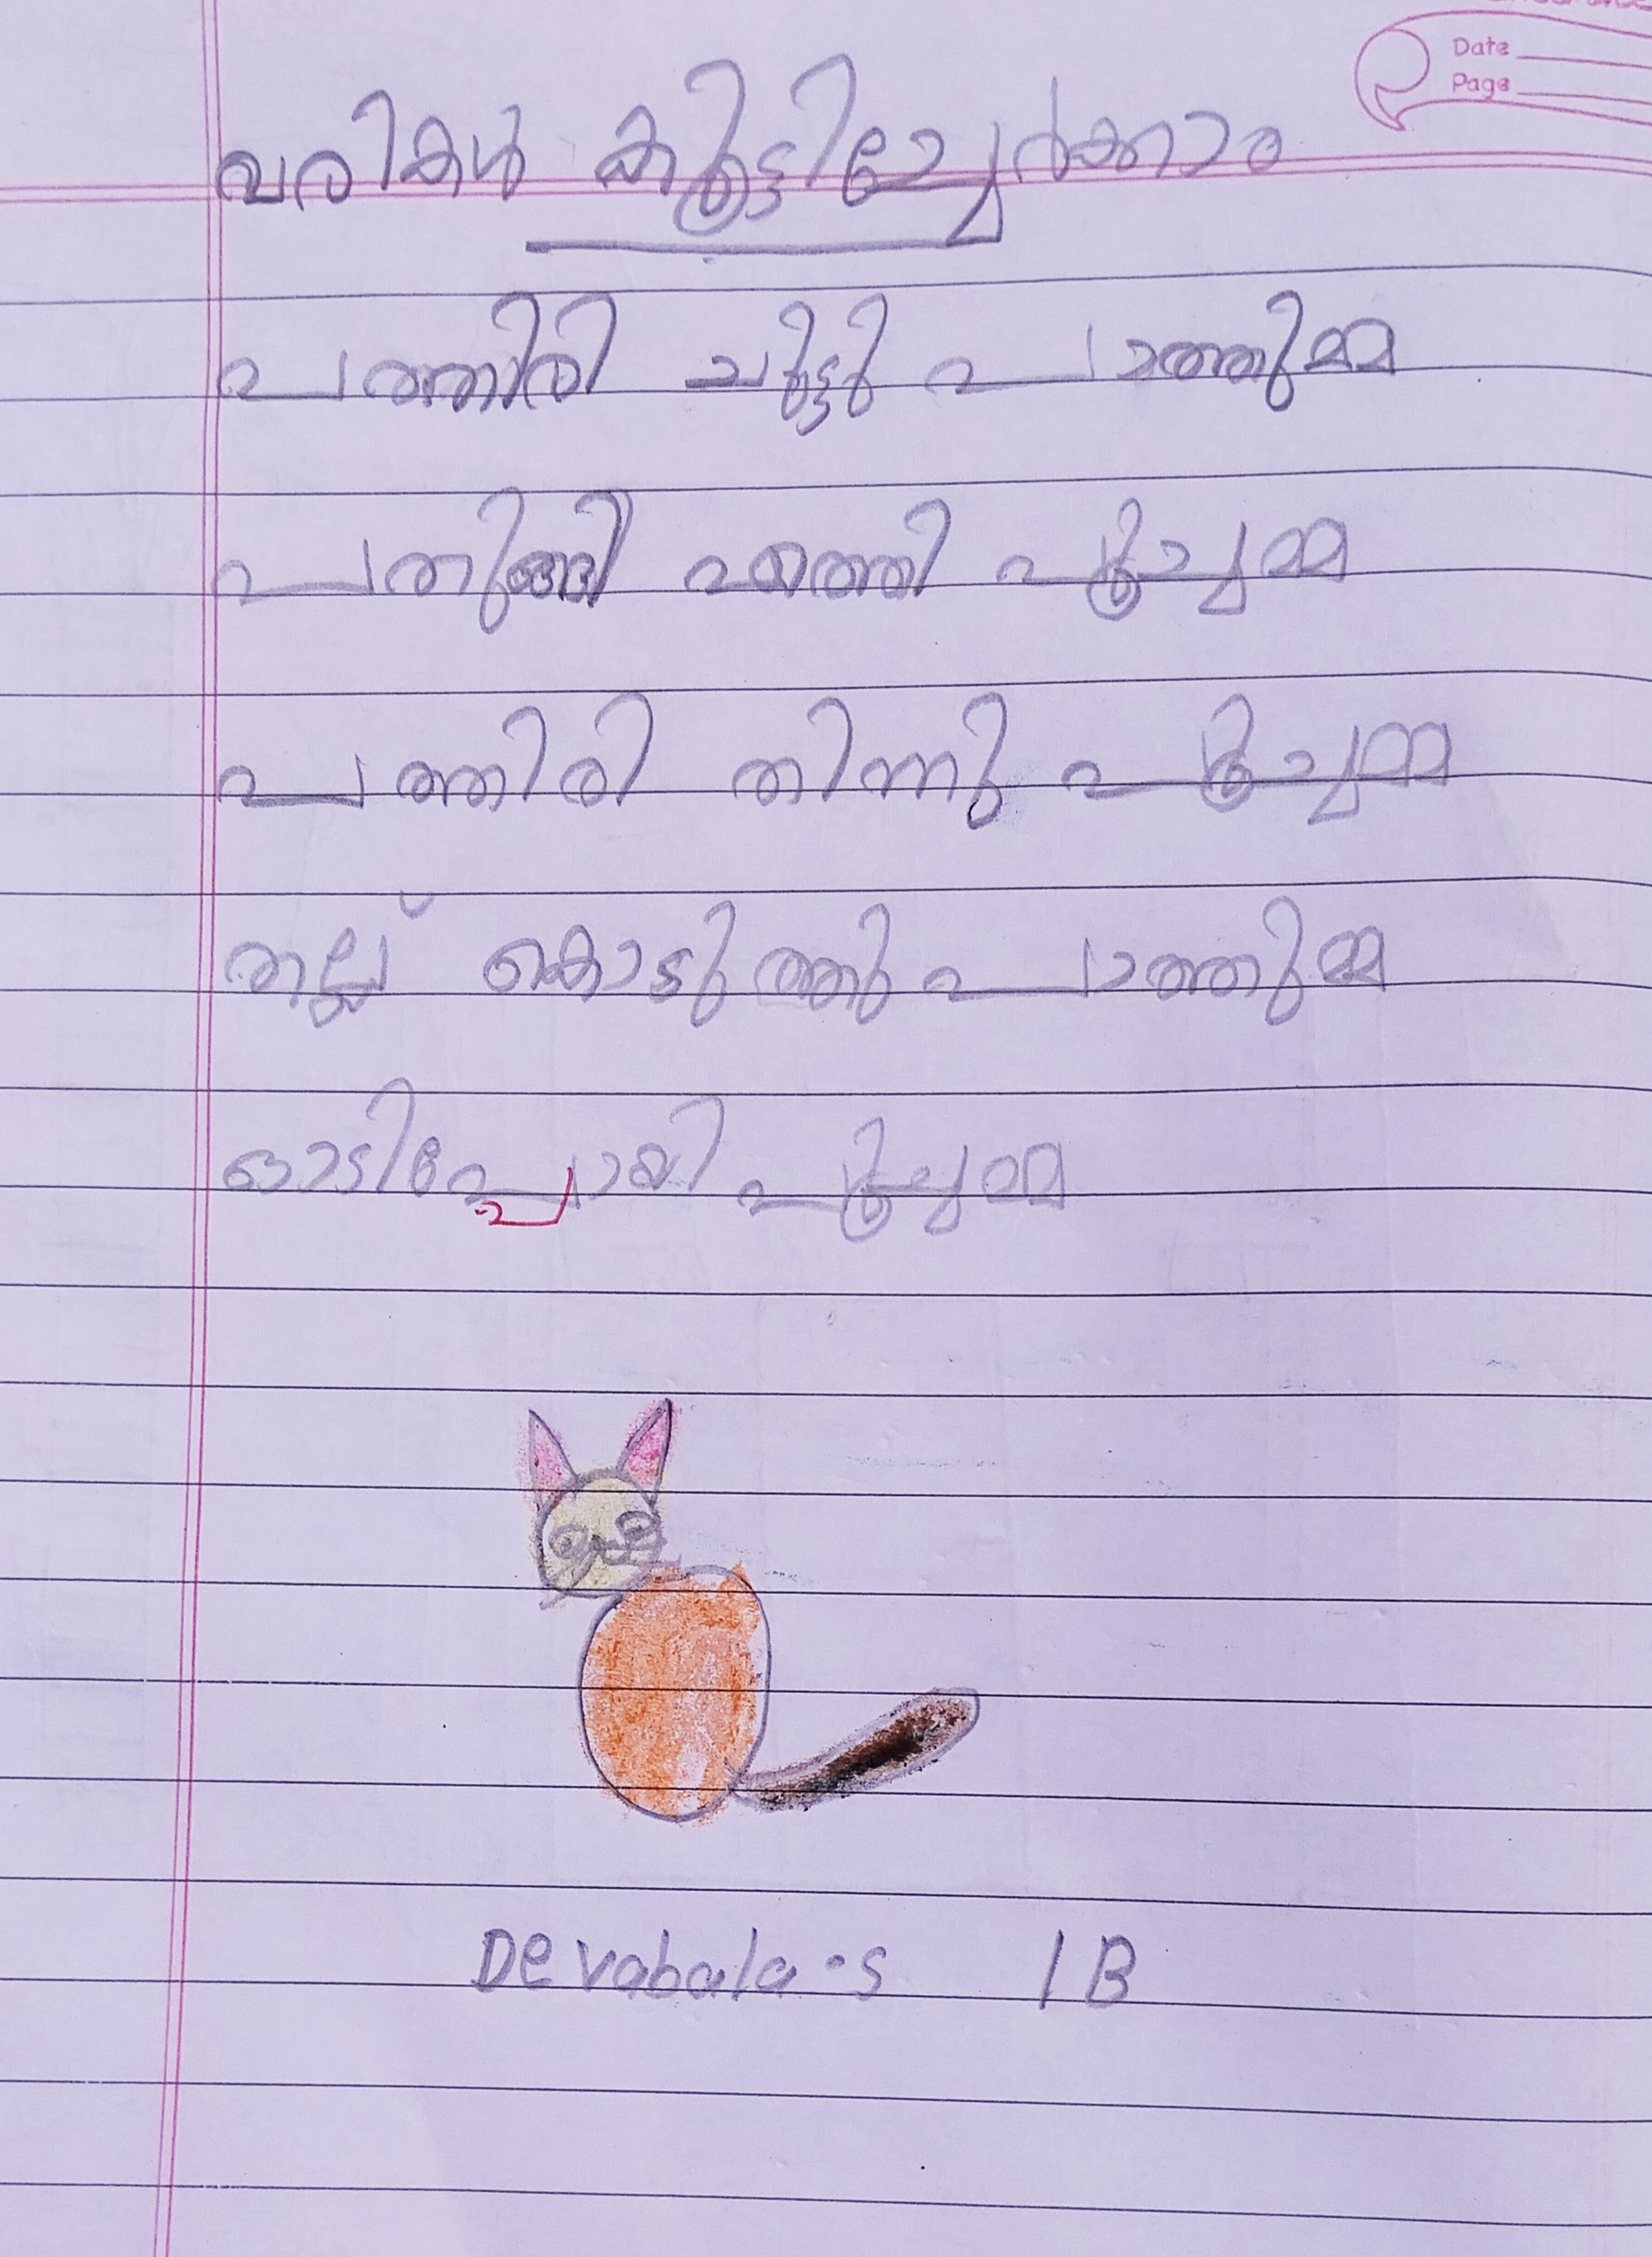 Date
Page
വരികൾ കൂട്ടിച്ചേർക്കാം
പത്തിരി ചുട്ടു പാത്തുമ്മ
പതുങ്ങി എത്തി പൂച്ചമ്മ
പത്തിരി തിന്നു പൂച്ചമ്മ
തല്ല് കൊടുത്തു പാത്തുമ്മ
ഓടിപ്പോയി പൂച്ചമ്മ
Devabala.s 1 B